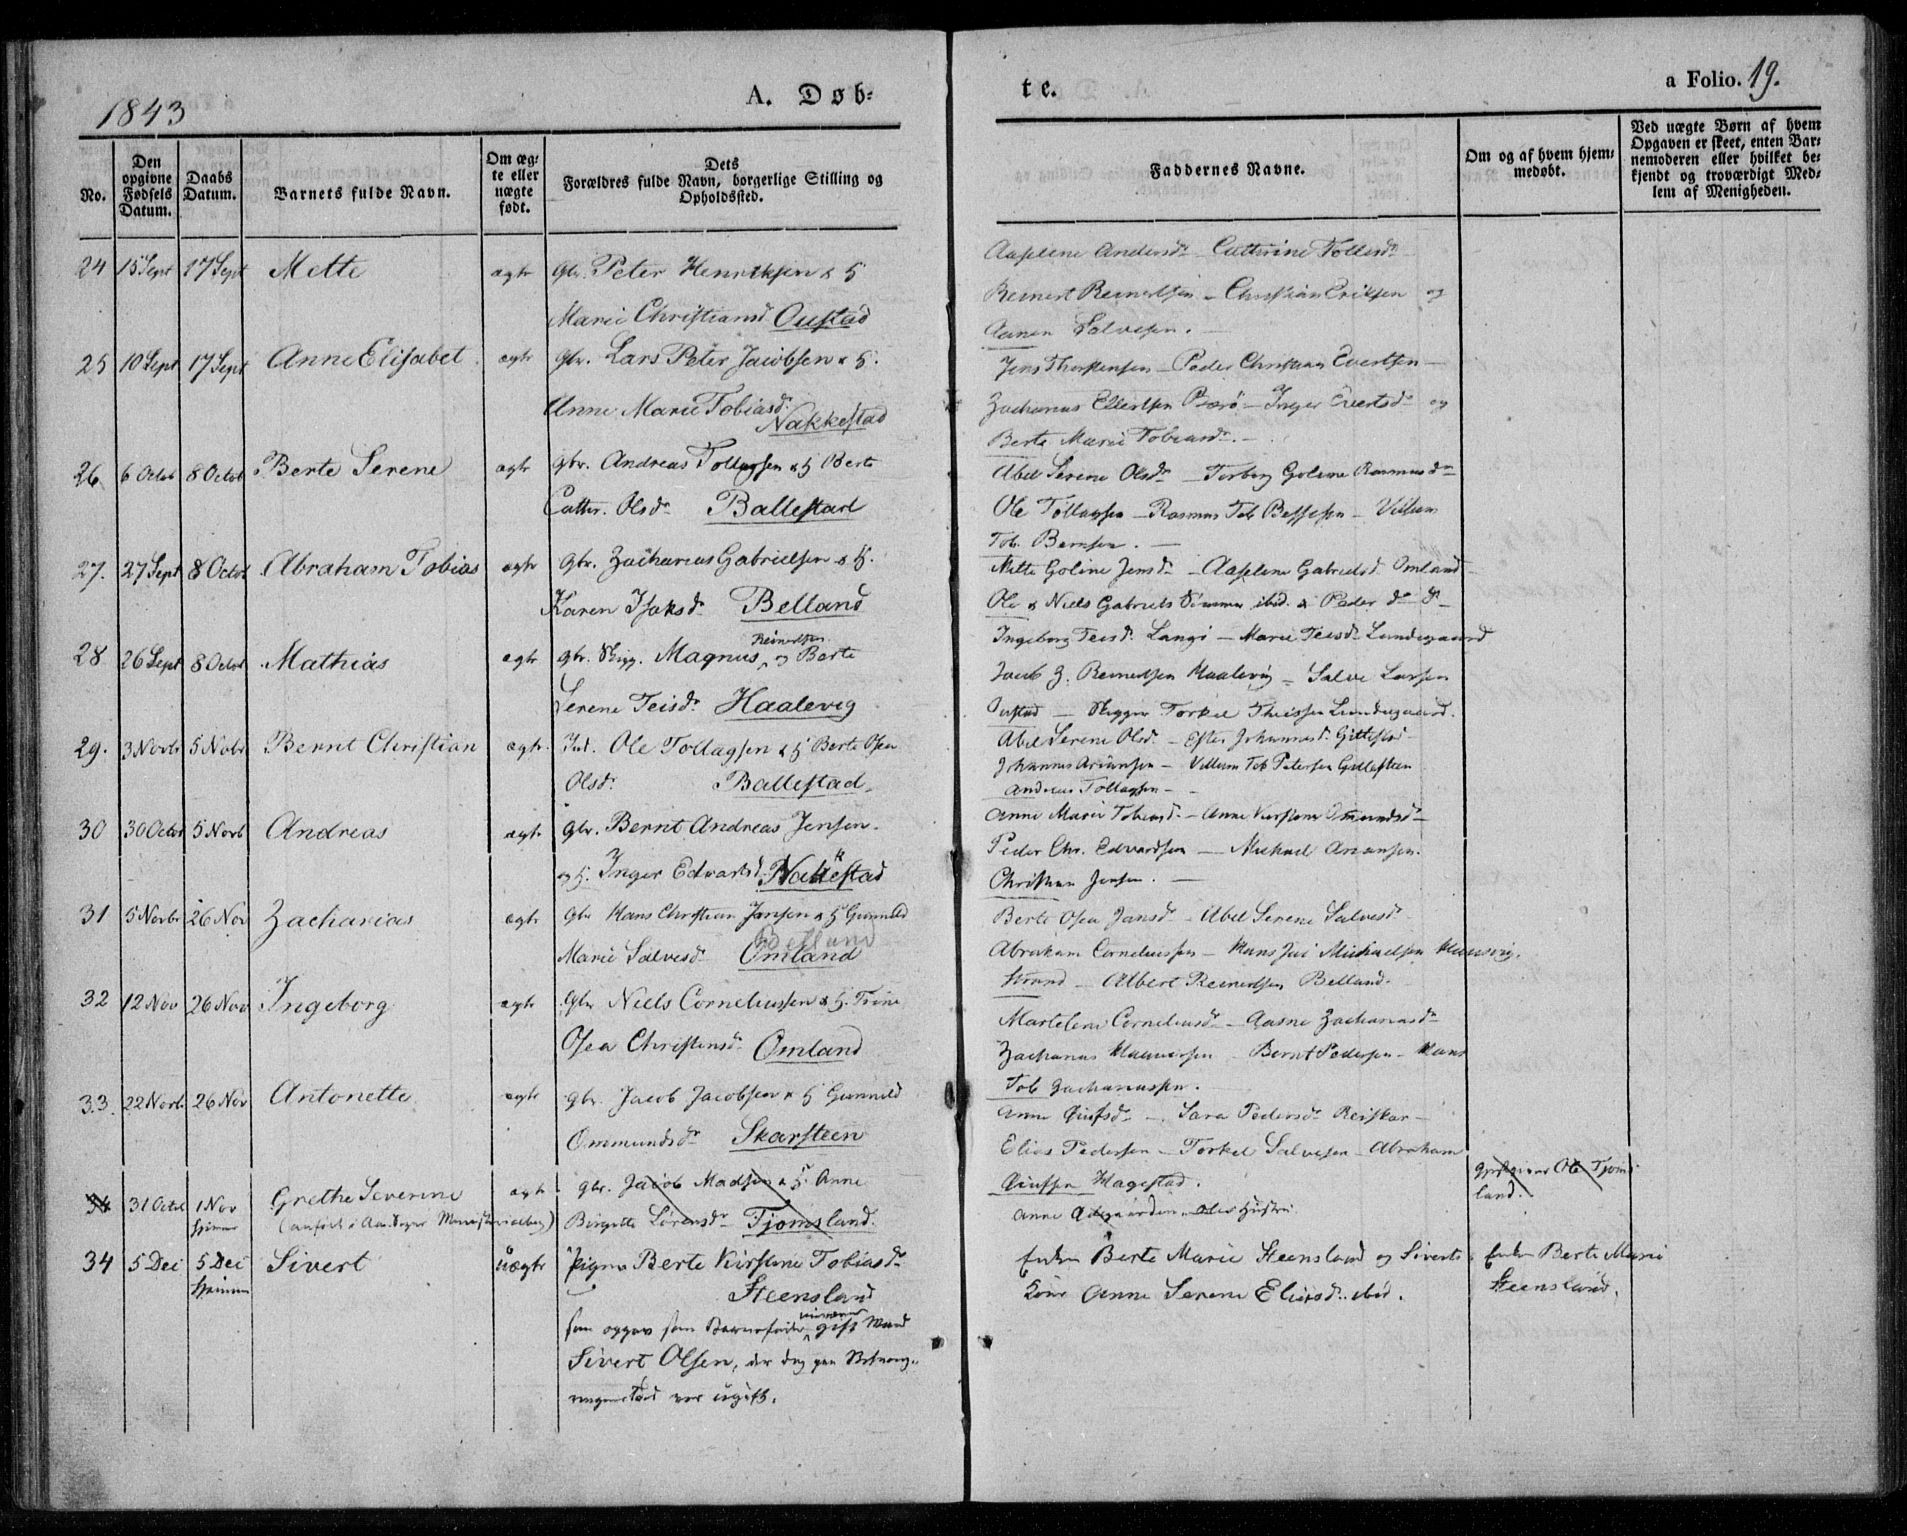 1843
A. Døb-
te.
a Folio. 19.
No.
Den opgivne Fødsels Datum.
Daabs Datum.
Barnets fulde Navn.
Om æg-
te eller
uægte
født.
Dets
Forældres fulde Navn, borgerlige Stilling og
Opholdssted.
Faddernes Navne.
Om og af hvem hjem-
medøbt.
Ved uægte Børn af hvem
Opgaven er skeet, enten Bar-
nemoderen eller hvilket be-
kjendt og troværdigt Med-
lem af Menigheden.
24 15 Sept 17 Sept Mette ægte Gbr. Peter Henriksen & H
Marie Christiansd Oustad
Aaselene Andersdr - Cathrine Tollesdr
Reinert Reinertsen - Christian Eriksen og
Aanen Salvesen.
25 10 Sept 17 Sept Anne Elisabet ægte gbr. Lars Peter Jacobsen & H.
Anne Marie Tobiasdr.
Nakkestad
Jens Thorstensen - Peder Christian Evertsen -
Zacharias Ellertsen - Inger Evertsdr og
Berte Marie Tobiasdr. -
26 6 Octob 8 Octob Berte Serene ægte gbr. Andreas Tollagsen & H Berte
Cathr. Olsdr Ballestad
Abel Serene Olsdr - Torborg Goline Rasmusdr
Ole Tollagsen - Rasmus Tob Bessesen - Villum
Tob. Berntsen. -
27. 27 Sept 8 Octob Abraham Tobias ægte gbr. Zacharias Gabrielsen & H.
Karen Isaksdr Belland
Mette Goline Jensdr - Aaselene Gabrielsd Omland -
Ole & Niels Gabriels Sønner ibid. & Peder do do
28 26 Sept 8 Octob Mathias ægte gbr. Skipp. Magnus Reinertsen og Berte
Serene Teisdr Haalevig
Ingeborg Teisdr. Langø - Marie Teisdr Lundegaard
Jacob Z. Reinertsen Haalevig - Salve Larsen
Oustad - Skipper Torkel Theissen Lundegaard.
29. 3 Novbr 5 Novbr Bernt Christian ægte. Ind. Ole Tollagsen & H Berte Osea
Olsdr. Ballestad.
Abel Serene Olsd. - Ester Johannesd. Gittlestad -
Johannes Ariansen - Villum Tob Petersen
Andreas Tollagsen -
30 30 Octob 5 Novb Andreas ægte Gbr. Bernt Andreas Jensen.
og H. Inger Edvartsd. Nakkestad
Anne Marie Tobiasd. - Anne Kirstine Omundsd -
Peder Chr. Edvardsen - Michael Ariansen.
Christian Jensen. -
31 5 Novbr 26 Nov Zacharias ægte Gbr Hans Christian Jansen & H Gunnild
Belland
Marie Salvesdr Omland
Berte Osea Jansd - Abel Serene Salvesd
Abraham Corneliussen - Hans Jac Michaelsen
Strand - Albert Reinertsen Belland.
32 12 Nov 26 Nov Ingeborg ægte Gbr Niels Corneliussen & H. Trine
Osea Christensdr Omland
Martelene Corneliusdr - Aasne Zachariasdr
Zacharias - Bernt Pedersen - Hans
Tob Zachariassen.
33. 22 Novb 26 Nov Antonette ægte gbr. Jacob Jacobsen & H Gunnild
Ommundsdr Skarsteen
Anne - Sara Pedersdr Reiskar -
Elias Pedersen - Torkel Salvesen - Abraham
Hagestad.
34 31 Octob 1 Nov hjemme Grethe Severine ægte gbr. Jacob Madsen & H. Anne
(anført i Ministerialbog) Birgitte Lorensdr Tjomsland.
Anne - Oles Hustru
Ole Tjoms-
land.
34 5 Dec 5 Dec hjemme Sivert uægte Pigen Berte Kirstine Tobiasdr
Steensland
som opgav som Barnefader nuværende gift Mand
Sivert Olsen, der dog paa Besvang-
ringens Tid var ugift.
Enken Berte Marie Steensland og Siverts
Kone Anne Serene Eliasdr. ibid.
Enken Berte Marie
Steensland.